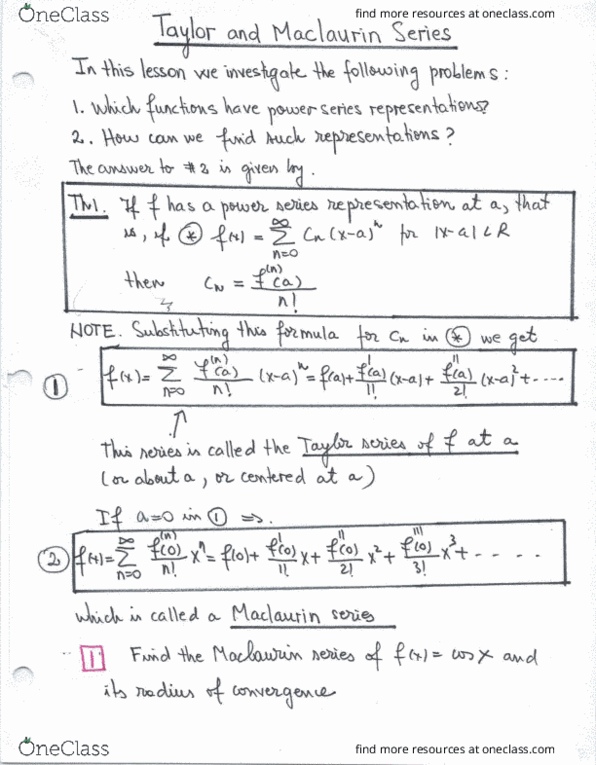 OneClass find more resources at oneclass.com
Taylor and Maclaurin Series
In this lesson we investigate the following problems :
1. Which functions have power series representations?
2. How can we find such representations ?
The answer to #2 is given by.
Th1. If f has a power series representation at a, that
is, if ⊛ f(x) = ∑_{n=0}^{∞} Cn (x-a)^n for |x-a| < R
then Cn = f^(n)(a) / n!
NOTE. Substituting this formula for Cn in ⊛ we get
① f(x) = ∑_{n=0}^{∞} f^(n)(a)/n! (x-a)^n = f(a) + f'(a)/1! (x-a) + f''(a)/2! (x-a)^2 + .....
This series is called the Taylor series of f at a
(or about a, or centered at a)
If a=0 in ① ⇒.
② f(x) = ∑_{n=0}^{∞} f^(n)(0)/n! x^n = f(0) + f'(0)/1! x + f''(0)/2! x^2 + f'''(0)/3! x^3 + - - - . .
which is called a Maclaurin series
1 Find the Maclaurin series of f(x) = cos x and
its radius of convergence
OneClass find more resources at oneclass.com